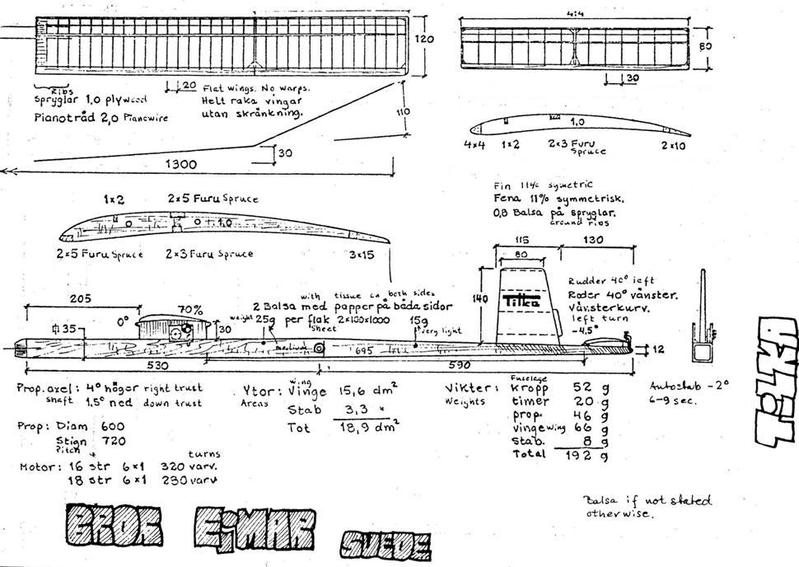 120
20
Ribs
Spryglar 1,0 plywood
Pianotråd 2,0 Pianowire
Flat wings. No warps.
Helt raka vingar
utan skränkning.
110
30
1300
444
80
30
1,0
4x4 1x2 2x3 Furu 2x10
Spruce
1x2 2x5 Furu Spruce
1,0
2x5 Furu Spruce 2x3 Furu Spruce 3x15
Fin 11% symetric
Fena 11% symmetrisk.
0,8 Balsa på spryglar.
around ribs
115 130
80
140
Tilka
Rudder 40° left
Roder 40° vänster.
Vänsterkurv.
left turn
-4,5°
12
205
0°
70%
30
35
with tissue on both sides
2 Balsa med papper på båda sidor
weight 25g per flak 2x100x1000 15g
sheet very light
medium
695
530 590
Prop. axel: 4° höger right trust
shaft 1,5° ned down trust
Prop: Diam 600
Stign 720
Pitch
turns
Motor: 16 str 6x1 320 varv.
18 str 6x1 290 varv
Ytor: Vinge 15,6 dm²
wing
Areas Stab 3,3 "
Tot 18,9 dm²
Fuselage
Vikter: kropp 52 g
Weights timer 20 g
prop. 46 g
vinge wing 66 g
stab. 8 g
Total 192 g
Autostab -2°
6-9 sec.
Balsa if not stated
otherwise.
BROR EjMAR SUEDE
TiLKA